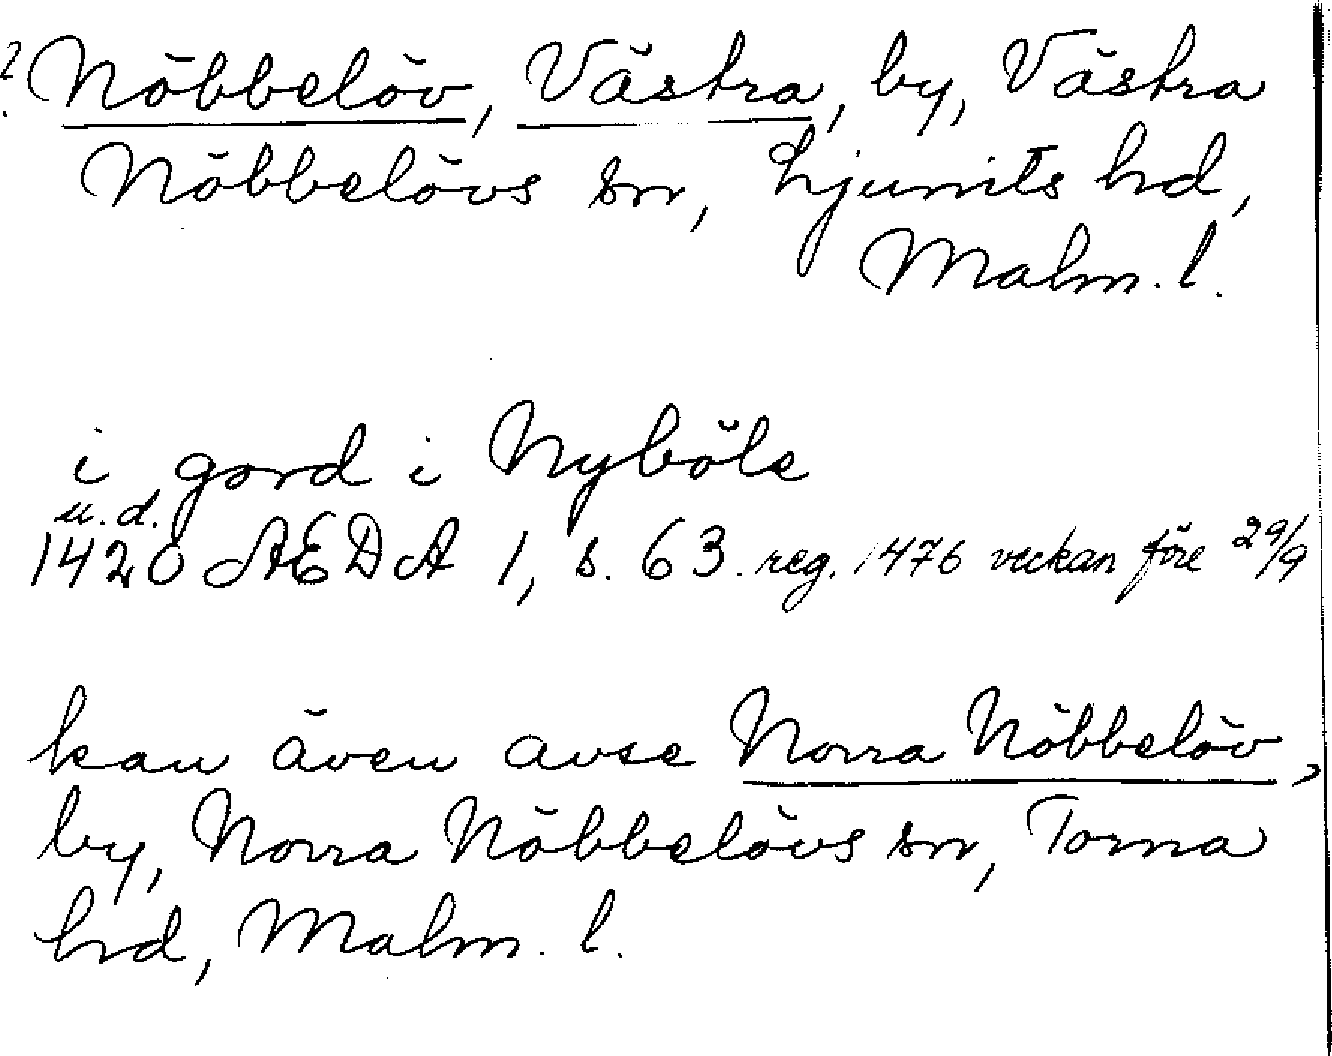 ? Nöbbelöv, Västra, by, Västra
Nöbbelövs sn, Ljunits hd,
Malm. l.
i gord i Nyböle
u. d.
1420 AEDA 1, s. 63. reg. 1476 veckan före 29/9
kan även avse Norra Nöbbelöv,
by, Norra Nöbbelövs sn, Torna
hd, Malm. l.